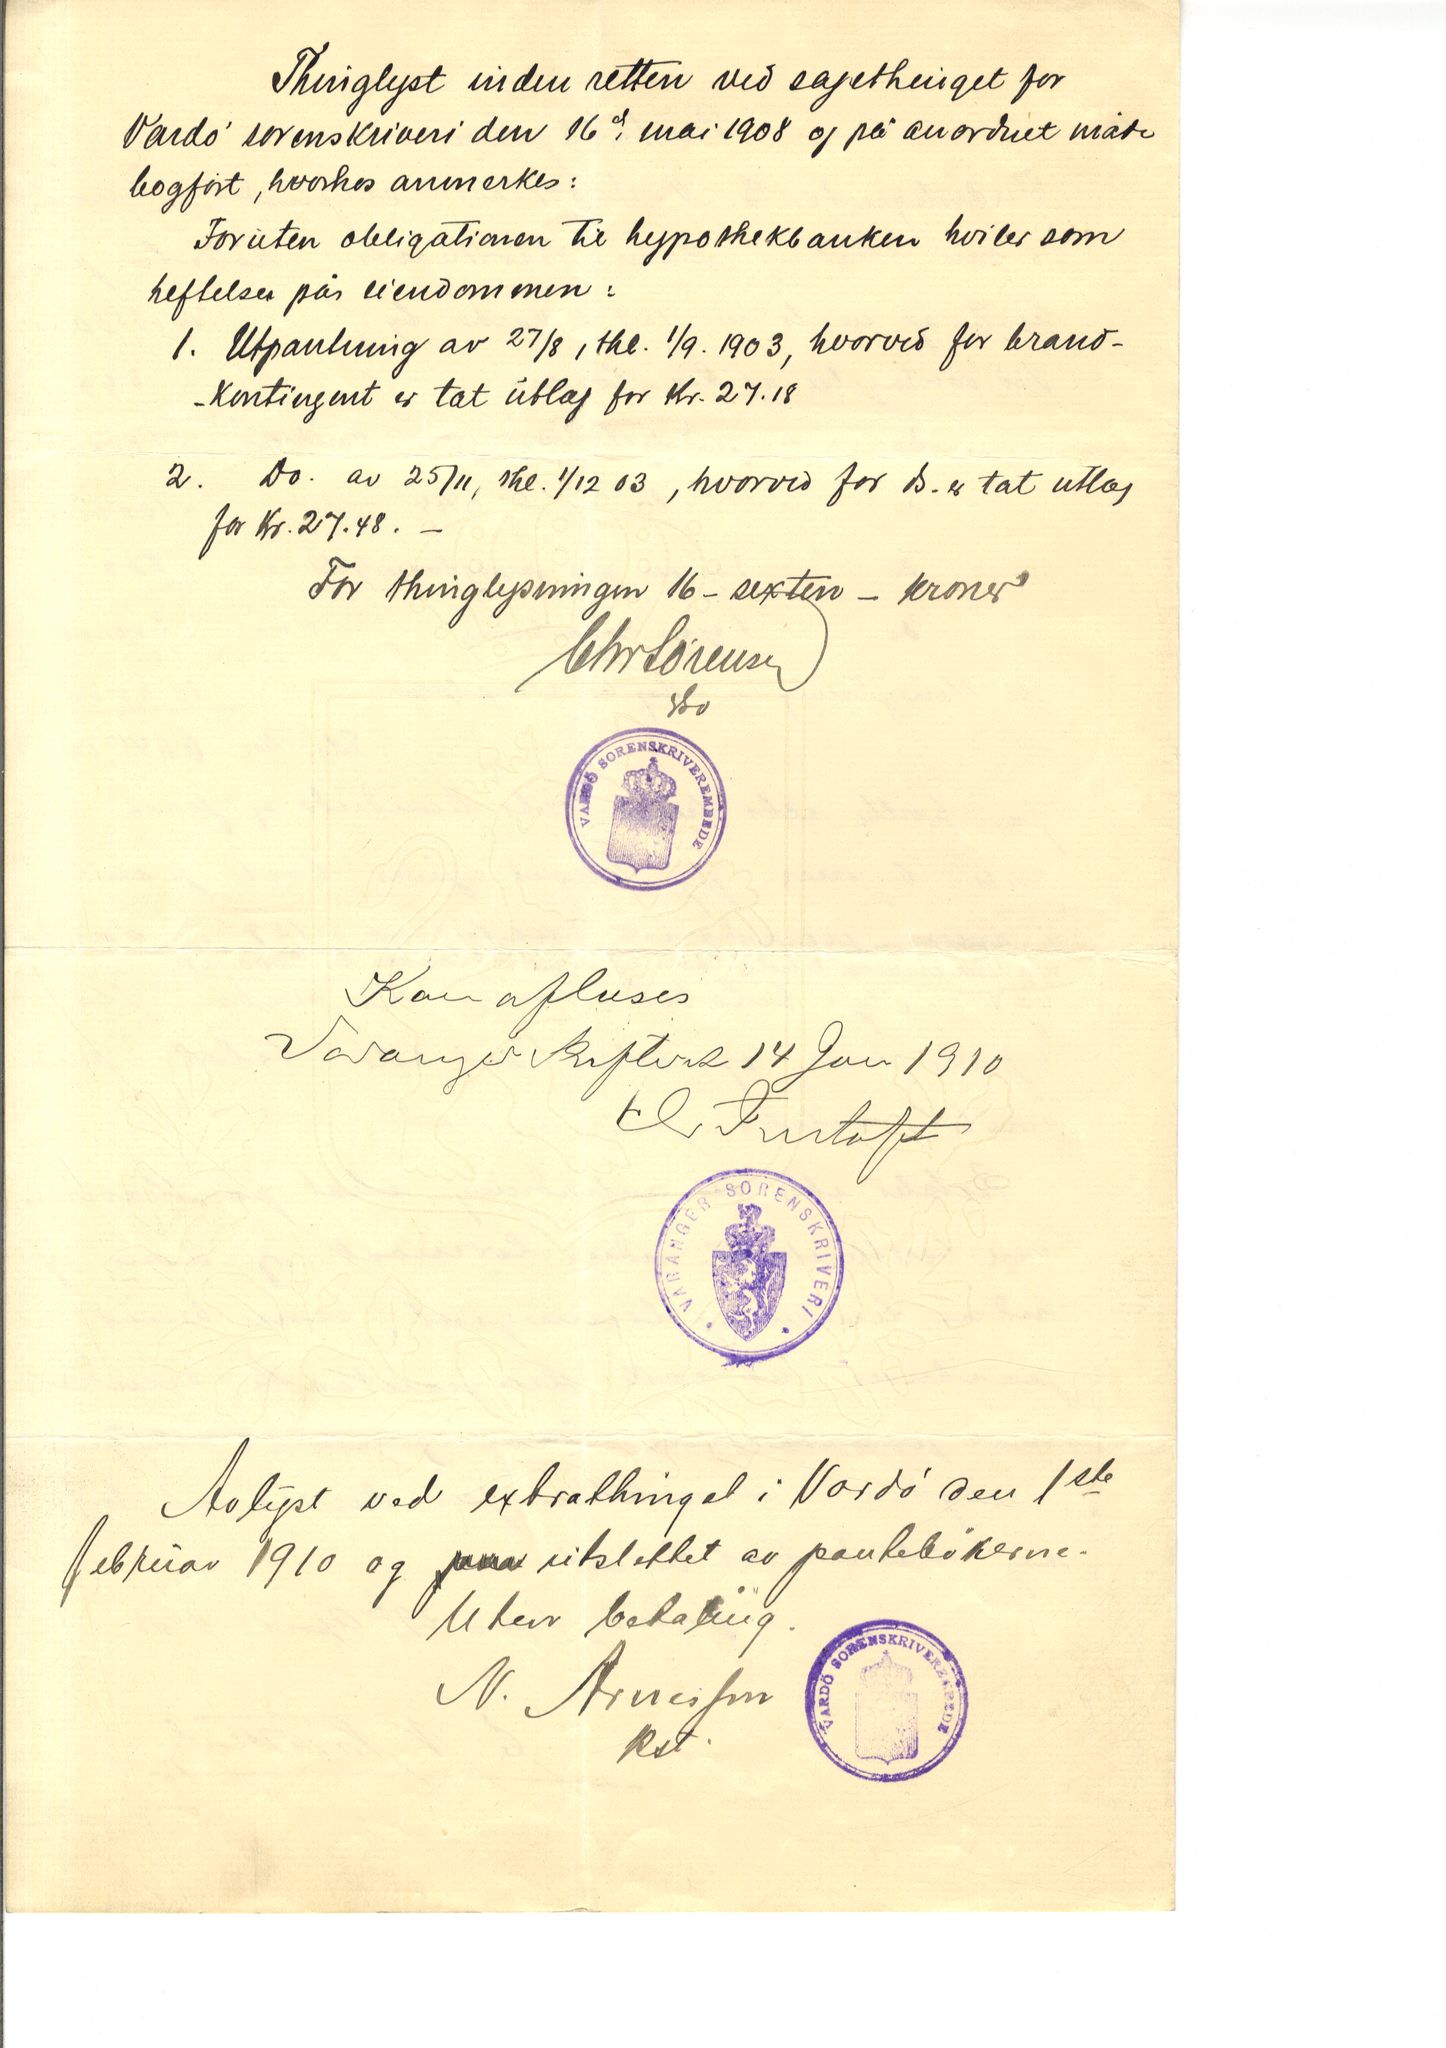 Thinglyst inden retten ved sagethinget for
Vardö sorenskriveri den 16d. mai 1908 og på anordnet måte
bogført, hvorhos anmerkes:
Foruten obligationen til hypothekbanken hviler som
heftelser på eiendommen:
1. Utpantning av 27/8, thl. 1/9. 1903, hvorved for brand-
-kontingent er tat utlæg for Kr. 27.18
2. Do. av 25/11, thl. 1/12 03, hvorved for do. er tat utlæg
for Kr. 27.48. —
For thinglysningen 16 – sexten – kroner
Chr Sörensen
VARDÖ SORENSKRIVEREMBEDE
Kan aflyses
Varanger skifteret 14 Jan 1910
VARANGER SORENSKRIVERI
Avlyst ved extrathinget i Vardö den 1ste
februar 1910 og utslettet av pantebökerne.
Uten betaling.
N. Arnesson
kst.
VARDÖ SORENSKRIVEREMBEDE